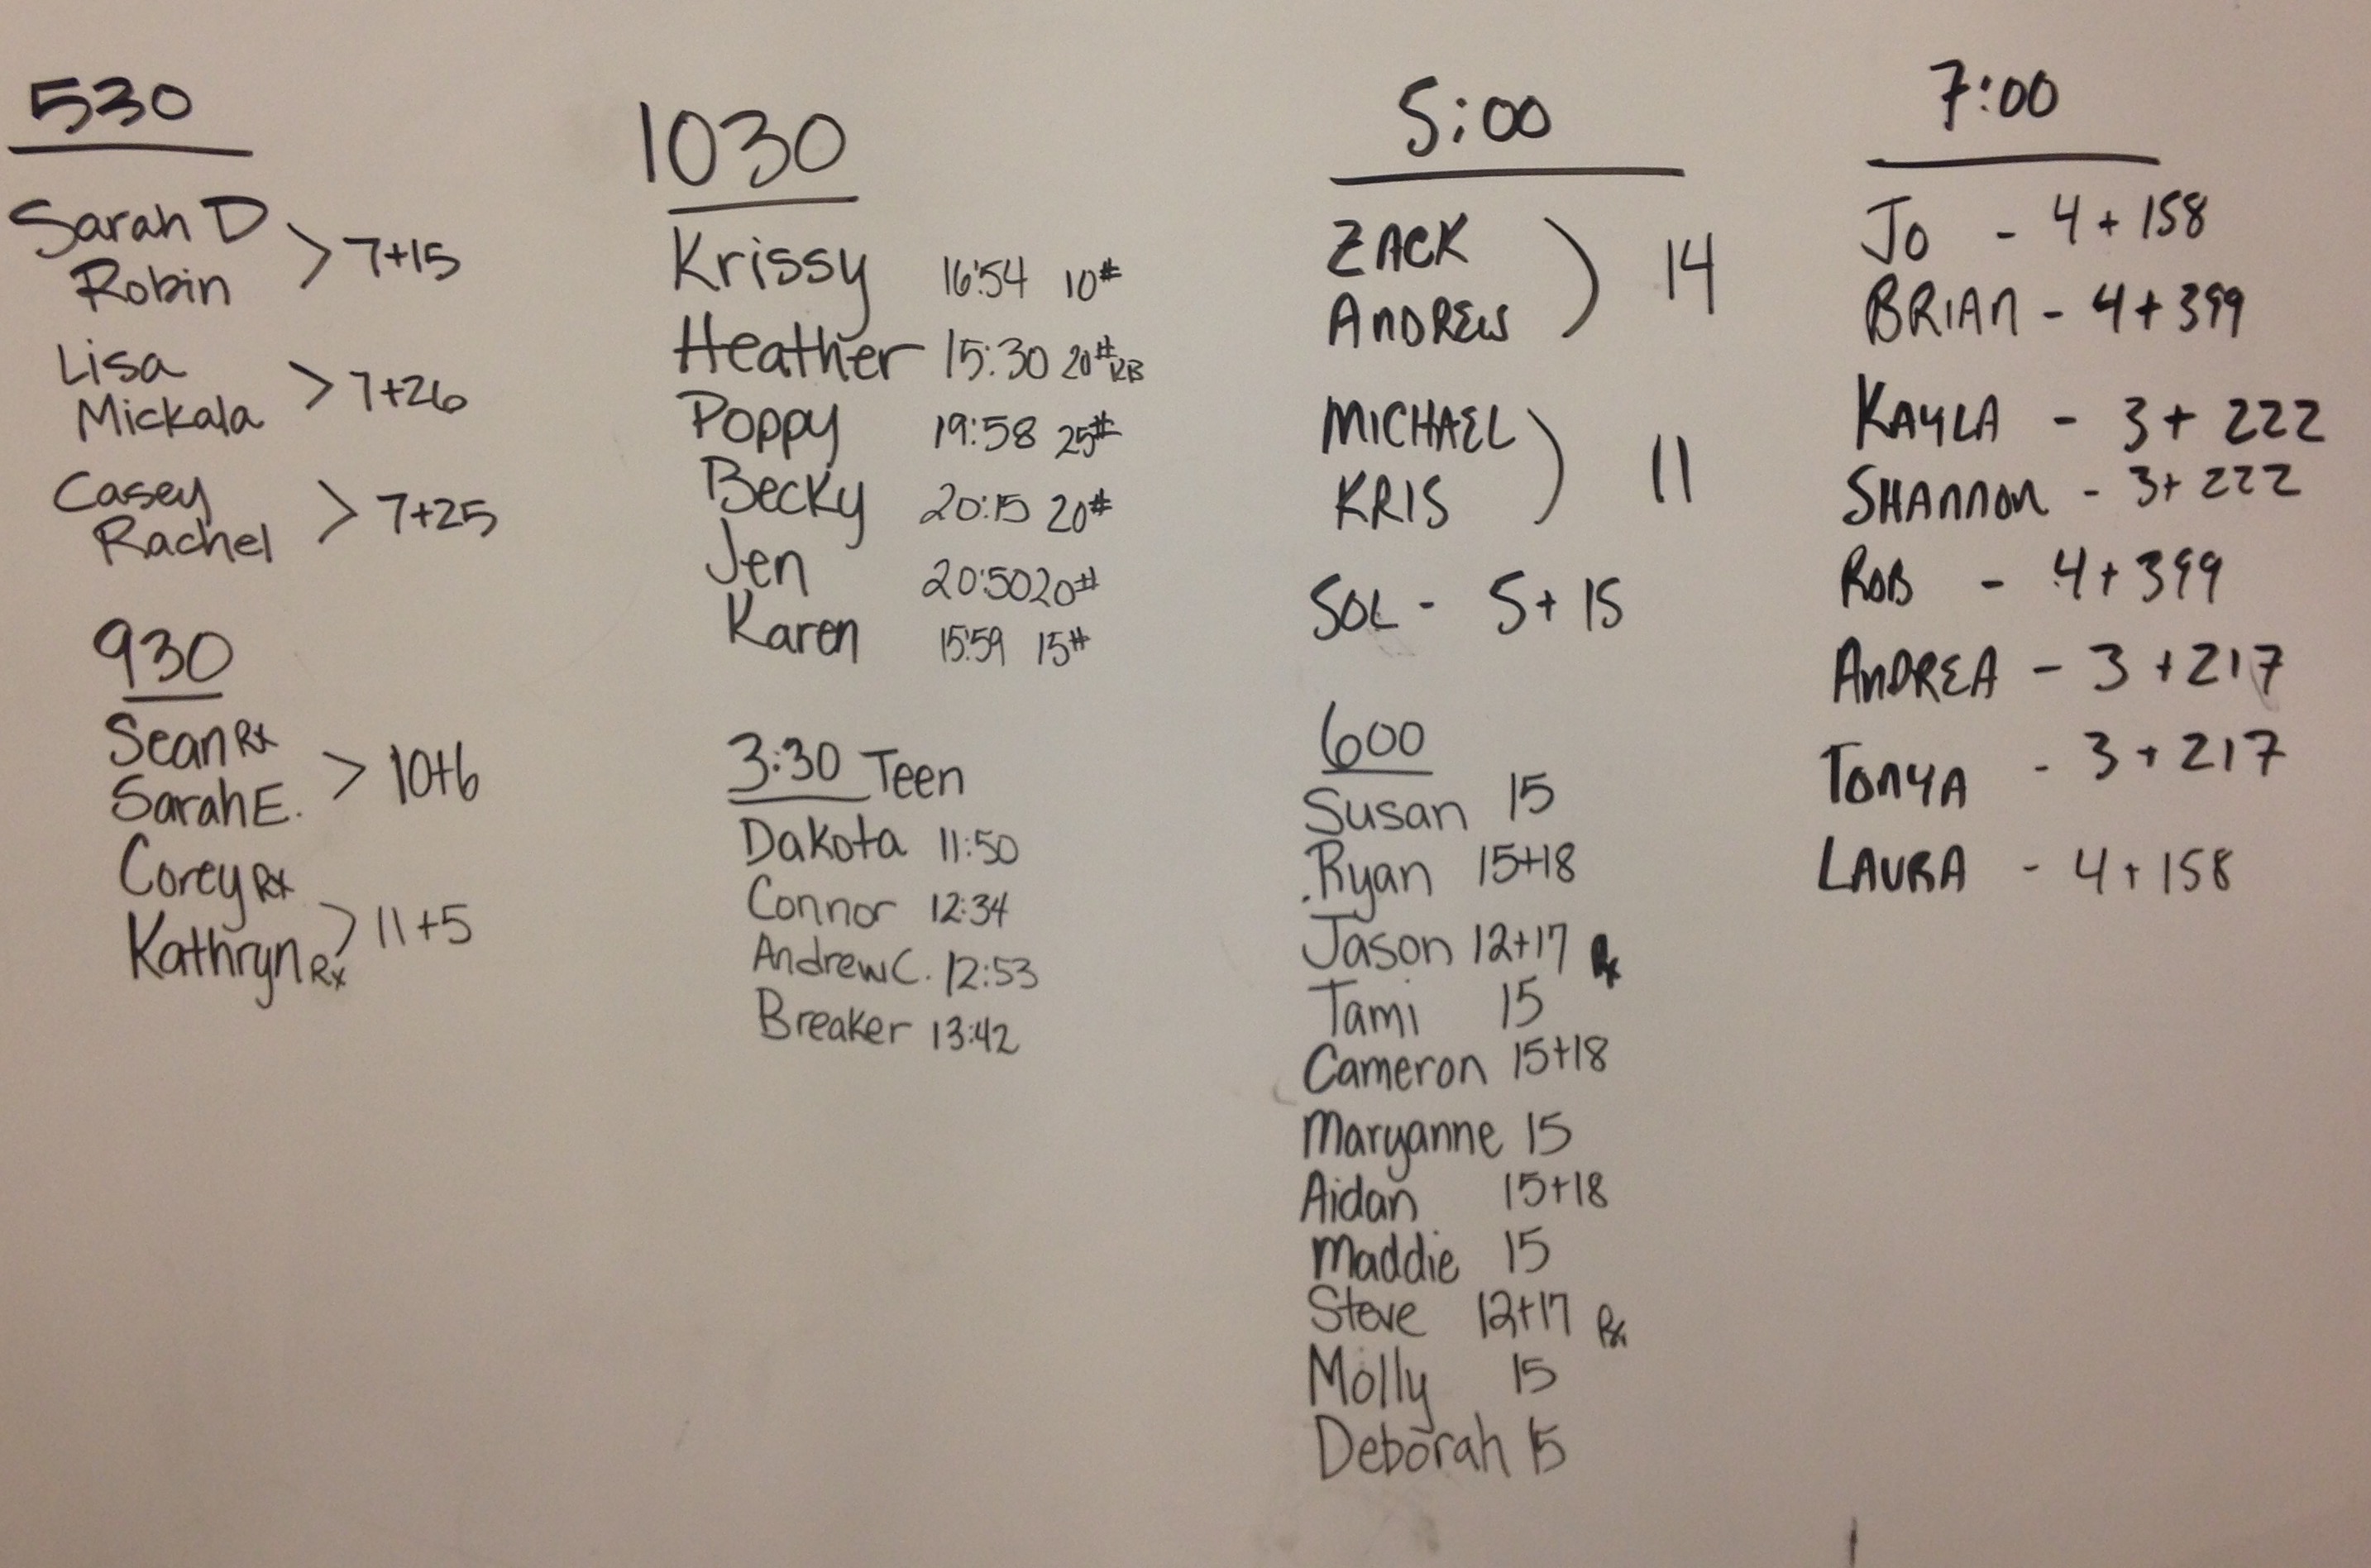 530
Sarah D
Robin
> 7+15
Lisa
Mickala
> 7+26
Casey
Rachel
> 7+25
930
Sean Rx
Sarah E.
> 10+6
Corey Rx
Kathryn Rx
> 11+5
1030
Krissy 16:54 10#
Heather 15:30 20# RB
Poppy 19:58 25#
Becky 20:15 20#
Jen 20:50 20#
Karen 15:59 15#
3:30 Teen
Dakota 11:50
Connor 12:34
Andrew C. 12:53
Breaker 13:42
5:00
ZACK
ANDREW
) 14
MICHAEL
KRIS
) 11
SOL - 5+15
600
Susan 15
Ryan 15+18
Jason 12+17 Rx
Tami 15
Cameron 15+18
Maryanne 15
Aidan 15+18
Maddie 15
Steve 12+17 Rx
Molly 15
Deborah 15
7:00
JO - 4+158
BRIAN - 4+399
KAYLA - 3+222
SHANNON - 3+222
ROB - 4+399
ANDREA - 3+217
TONYA - 3+217
LAURA - 4+158